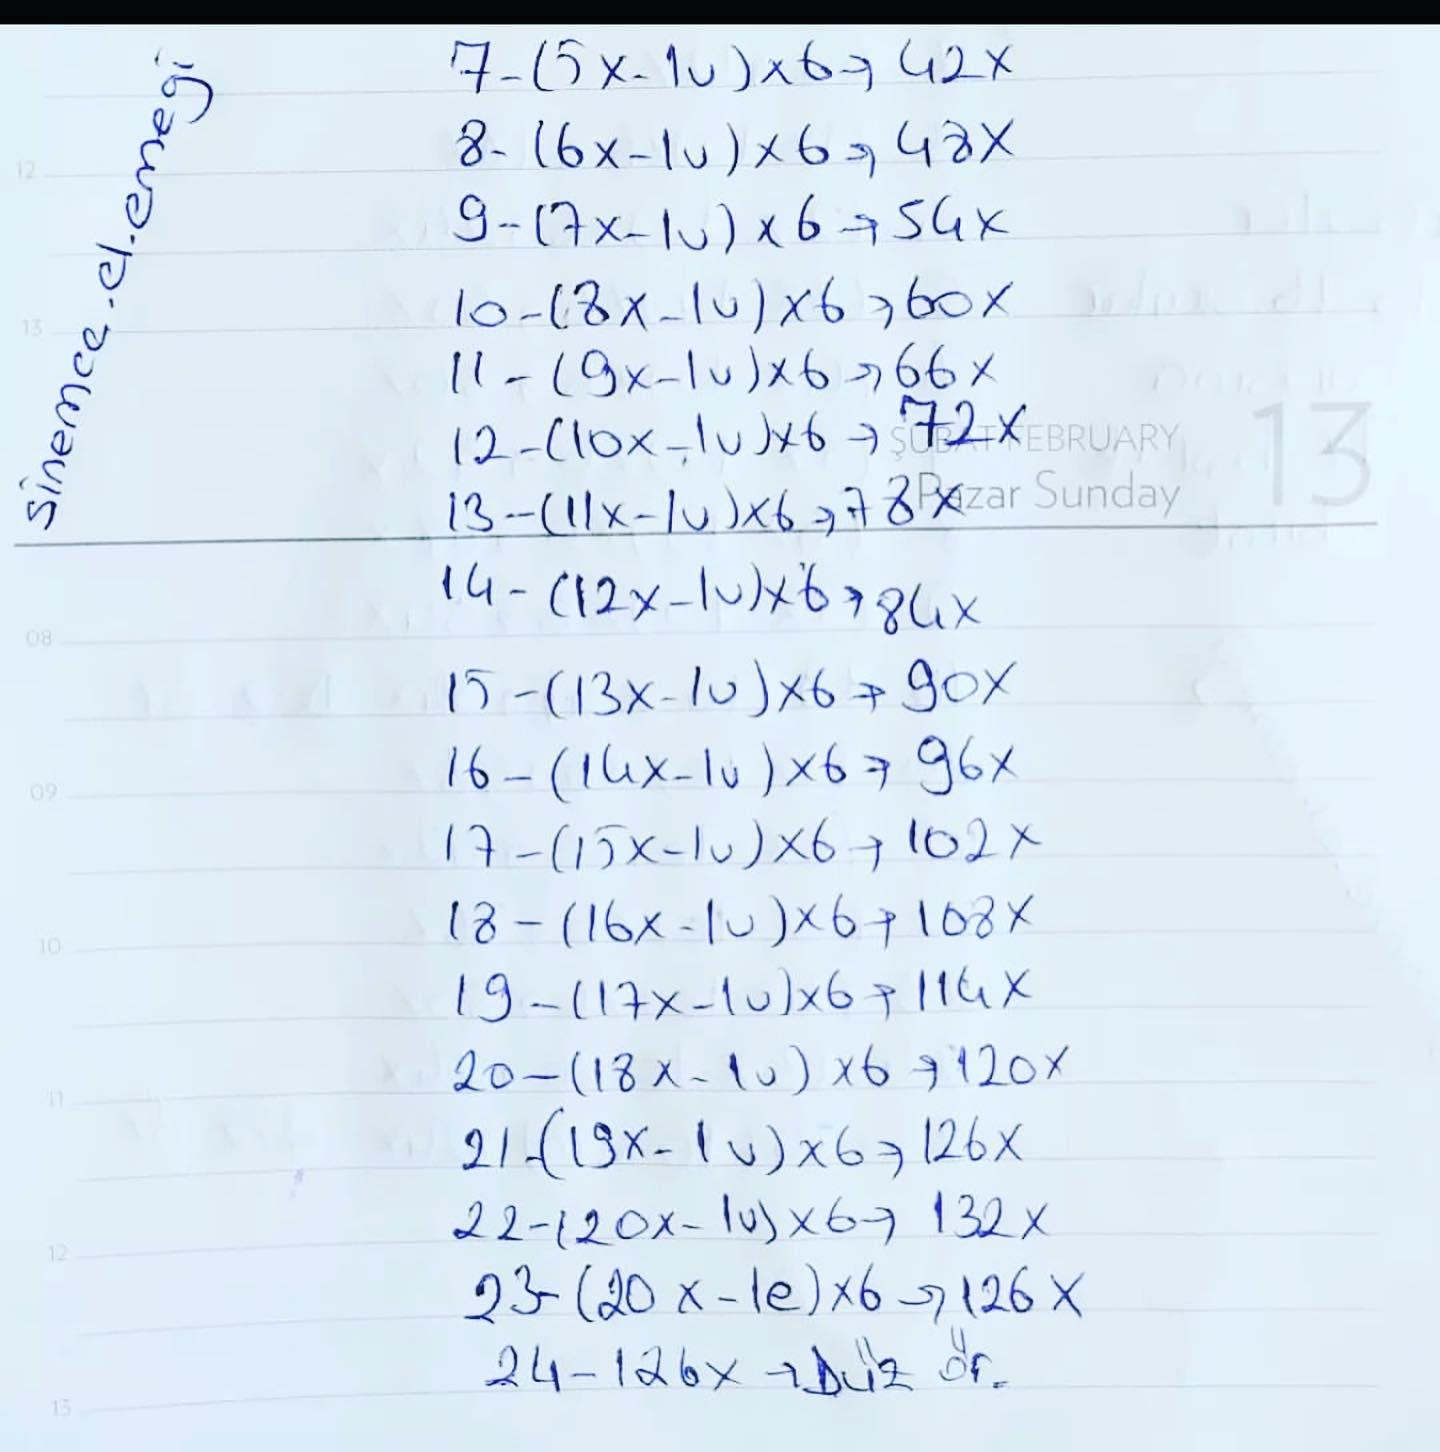 sinemce.el.emegi
7-(5x-1u)x6→42x
8-(6x-1u)x6→48x
9-(7x-1u)x6→54x
10-(8x-1u)x6→60x
11-(9x-1u)x6→66x
12-(10x-1u)x6→72x
ŞUBAT FEBRUARY 13
13-(11x-1u)x6→78x
Pazar Sunday
14-(12x-1u)x6→84x
15-(13x-1u)x6→90x
16-(14x-1u)x6→96x
17-(15x-1u)x6→102x
18-(16x-1u)x6→108x
19-(17x-1u)x6→114x
20-(18x-1u)x6→120x
21-(19x-1u)x6→126x
22-(20x-1u)x6→132x
23-(20x-1e)x6→126x
24-126x→Düz ör.
12
13
08
09
10
11
12
13